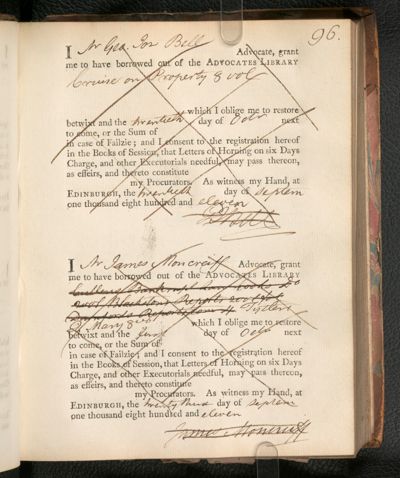 96.
I Mr Geo. Jos Bell Advocate, grant
me to have borrowed out of the ADVOCATES LIBRARY
Cruise on Property 8vo
which I oblige me to restore
betwixt and the twentieth day of Octr next
to come, or the Sum of
in case of Failzie; and I consent to the registration hereof
in the Books of Session, that Letters of Horning on six Days
Charge, and other Executorials needful, may pass thereon,
as effeirs, and thereto constitute
my Procurators. As witness my Hand, at
EDINBURGH, the twentieth day of Septem
one thousand eight hundred and eleven
I Mr James Moncreiff Advocate, grant
me to have borrowed out of the ADVOCATES LIBRARY
Reports
Reports
Mary 8
which I oblige me to restore
betwixt and the day of Octr next
to come, or the Sum of
in case of Failzie; and I consent to the registration hereof
in the Books of Session, that Letters of Horning on six Days
Charge, and other Executorials needful, may pass thereon,
as effeirs, and thereto constitute
my Procurators. As witness my Hand, at
EDINBURGH, the twenty third day of Septem
one thousand eight hundred and eleven
James Moncreiff